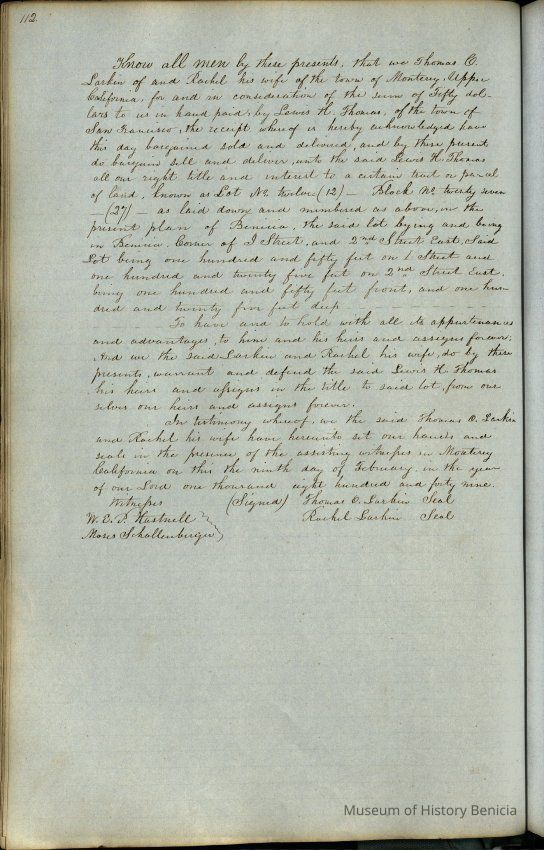 112.
Know all men by these presents, that we Thomas O.
Larkin of and Rachel his wife of the town of Monterey, Upper
California, for and in consideration of the sum of Fifty dol-
lars to us in hand paid, by Lewis H. Thomas, of the town of
San Francisco, the receipt whereof is hereby acknowledged have
this day bargained sold and delivered, and by these present
do bargain sell and deliver, unto the said Lewis H. Thomas
all our right title and interest to a certain tract or parcel
of land, known as Lot No. twelve (12) – Block No. twenty seven
– (27) – as laid down and numbered as above, in the
present plan of Benicia, the said lot bying and being
in Benicia. Corner of I Street, and 2nd Street East, Said
Lot being one hundred and fifty feet on I Street and
one hundred and twenty five feet on 2nd Street East.
being one hundred and fifty feet front, and one hun-
dred and twenty five feet deep
To have and to hold with all its appurtenances
and advantages, to him and his heirs and assigns forever.
And we the said Larkin and Rachel his wife, do by these
presents, warrant and defend the said Lewis H. Thomas
his heirs and assigns in the title to said lot, from our
selves our heirs and assigns forever.
In testimony whereof, we the said Thomas O. Larkin
and Rachel his wife have hereunto set our hands and
seals in the presence of the assisting witnesses in Monterey
California on this the ninth day of February, in the year
of our Lord one thousand eight hundred and forty nine.
Witnesses (Signed) Thomas O. Larkin Seal
W. E. P. Hartnell Rachel Larkin Seal
Moses Schallenberger
Museum of History Benicia